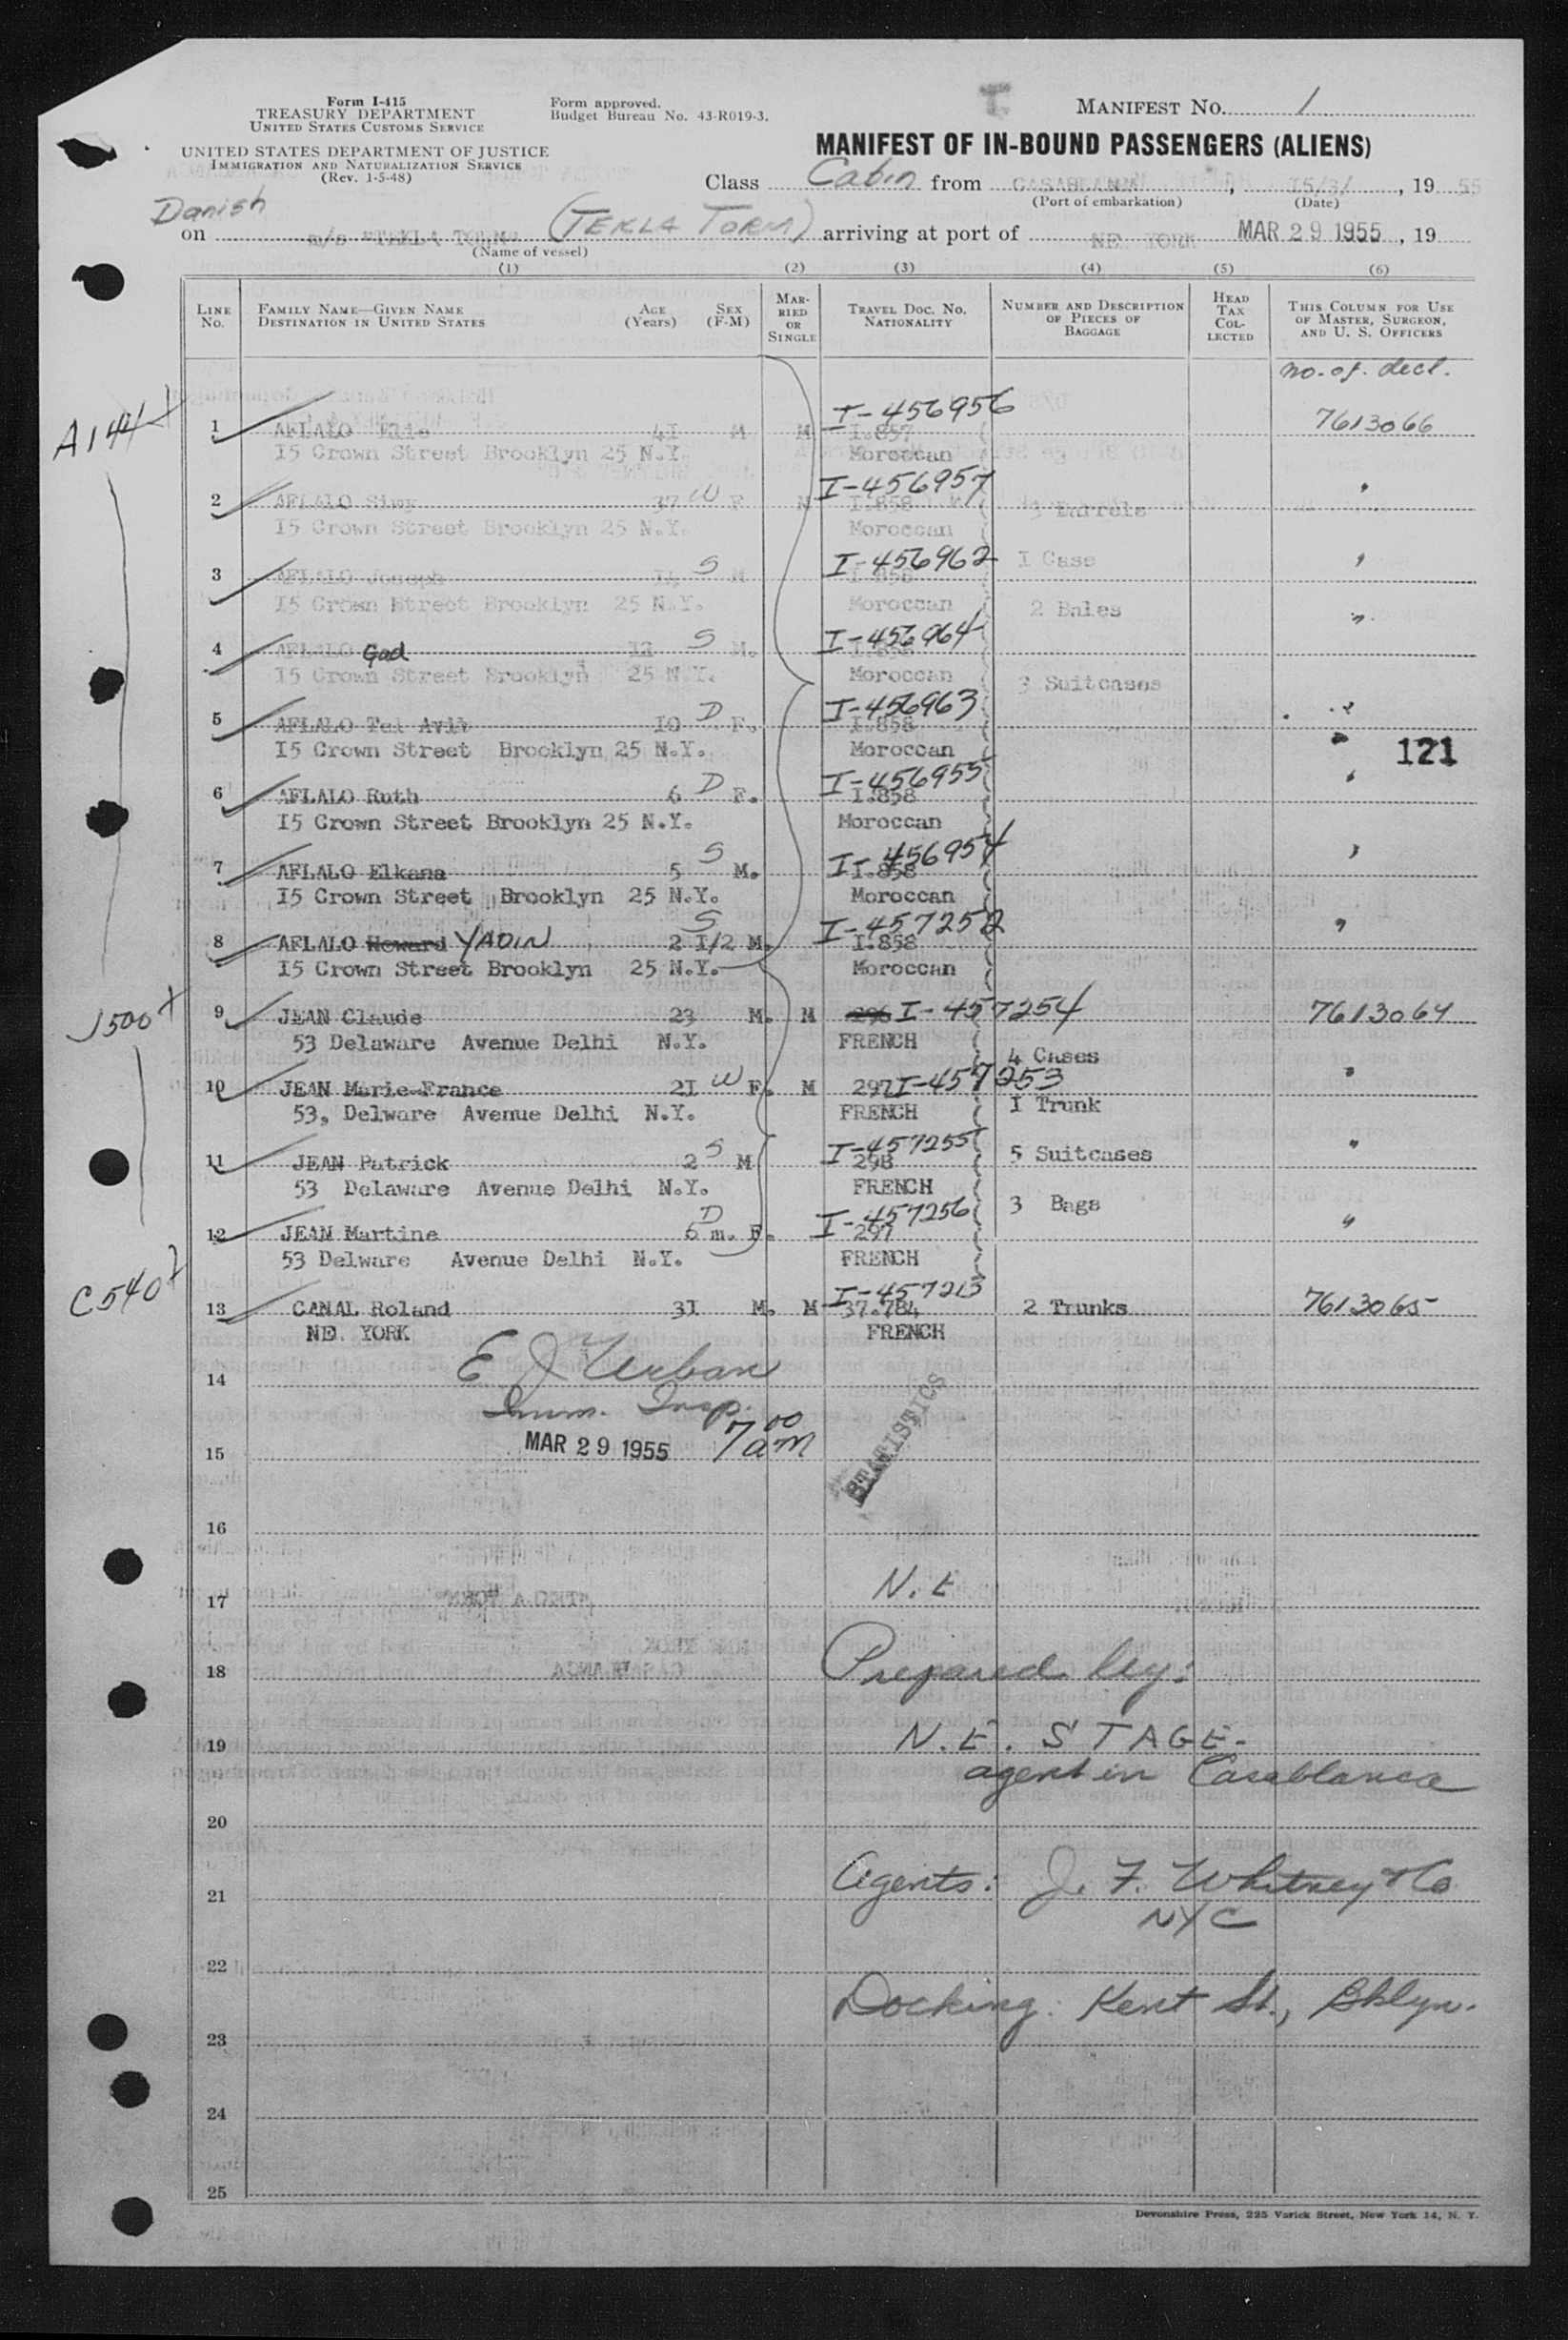 Form I-415
TREASURY DEPARTMENT
UNITED STATES CUSTOMS SERVICE
UNITED STATES DEPARTMENT OF JUSTICE
IMMIGRATION AND NATURALIZATION SERVICE
(Rev. 1-5-48)
Form approved.
Budget Bureau No. 43-R019-3.
MANIFEST NO. 1
MANIFEST OF IN-BOUND PASSENGERS (ALIENS)
Class Cabin from CASABLANCA, 15/3/, 19 55
(Port of embarkation) (Date)
Danish
on m/s "TEKLA TORM" (TEKLA TORM) arriving at port of NEW YORK MAR 29 1955, 19
(Name of vessel)
(1) (2) (3) (4) (5) (6)
LINE No. FAMILY NAME—GIVEN NAME DESTINATION IN UNITED STATES AGE (Years) SEX (F-M) MARRIED OR SINGLE TRAVEL DOC. NO. NATIONALITY NUMBER AND DESCRIPTION OF PIECES OF BAGGAGE HEAD TAX COLLECTED THIS COLUMN FOR USE OF MASTER, SURGEON, AND U. S. OFFICERS
no. of decl.
A144 I-456956
1 AFLALO Elie 41 M M I.857 7613066
15 Crown Street Brooklyn 25 N.Y. Moroccan
I-456957
2 AFLALO Simy 37 W F M I.858 3 Barrels "
15 Crown Street Brooklyn 25 N.Y. Moroccan
I-456962
3 AFLALO Joseph 14 S M I.858 I Case "
15 Crown Street Brooklyn 25 N.Y. Moroccan 2 Bales
I-456964
4 AFLALO Gad S M. I.858 "
15 Crown Street Brooklyn 25 N.Y. Moroccan 3 Suitcases
I-456963
5 AFLALO Tel Aviv 10 D F. I.858 "
15 Crown Street Brooklyn 25 N.Y. Moroccan 121
I-456955
6 AFLALO Ruth 6 D F. I.858 "
15 Crown Street Brooklyn 25 N.Y. Moroccan
I-456954
7 AFLALO Elkana 5 S M. I.858 "
15 Crown Street Brooklyn 25 N.Y. Moroccan
I-457252
8 AFLALO Howard YADIN 2 I/2 S M. I.858 "
15 Crown Street Brooklyn 25 N.Y. Moroccan
J500
9 JEAN Claude 23 M. M 296 I-457254 7613064
53 Delaware Avenue Delhi N.Y. FRENCH 4 Cases
10 JEAN Marie-France 21 W F. M 297 I-457253 "
53, Delware Avenue Delhi N.Y. FRENCH I Trunk
I-457255
11 JEAN Patrick 2 S M 298 5 Suitcases "
53 Delaware Avenue Delhi N.Y. FRENCH
I-457256 3 Bags
12 JEAN Martine 6 m. D F. 297 "
53 Delware Avenue Delhi N.Y. FRENCH
C540 I-457213
13 CANAL Roland 31 M. M 37.784 2 Trunks 7613065
NEW YORK FRENCH
E J Urban
14
Imm. Insp.
15 MAR 29 1955 7 00 am
STATISTICS
16
17 N.E
18 Prepared by:
19 N.E. STAGE-
agent in Casablanca
20
21 Agents: J. F. Whitney & Co
NYC
22
Docking: Kent St., Bklyn.
23
24
25
Devonshire Press, 225 Varick Street, New York 14, N. Y.